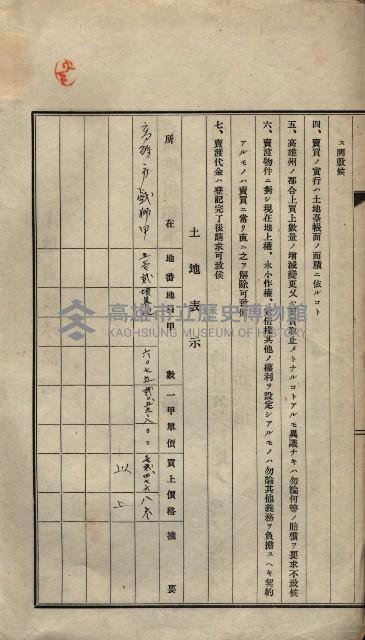 ス間敷候
四、賣買ノ實行ハ土地臺帳面ノ面積ニ依ルコト
五、高雄州ノ都合上買上數量ノ增減變更又ハ買取止メトナルコトアルモ異議ナキハ勿論何等ノ賠償ヲ要求不致候
六、賣渡物件ニ對シ現在地上權、永小作權、賃借權其他ノ權利ヲ設定シアルモノハ勿論其他義務ヲ負擔スヘキ契約
アルモノハ賣買ニ當リ直ニ之ヲ解除可致候
七、賣渡代金ハ登記完了後請求可致候
土地表示
所在 地番 地目 甲數 一甲單價 買上價格 摘要
高雄市戲獅甲
以上
高雄市立歷史博物館
KAOHSIUNG MUSEUM OF HISTORY